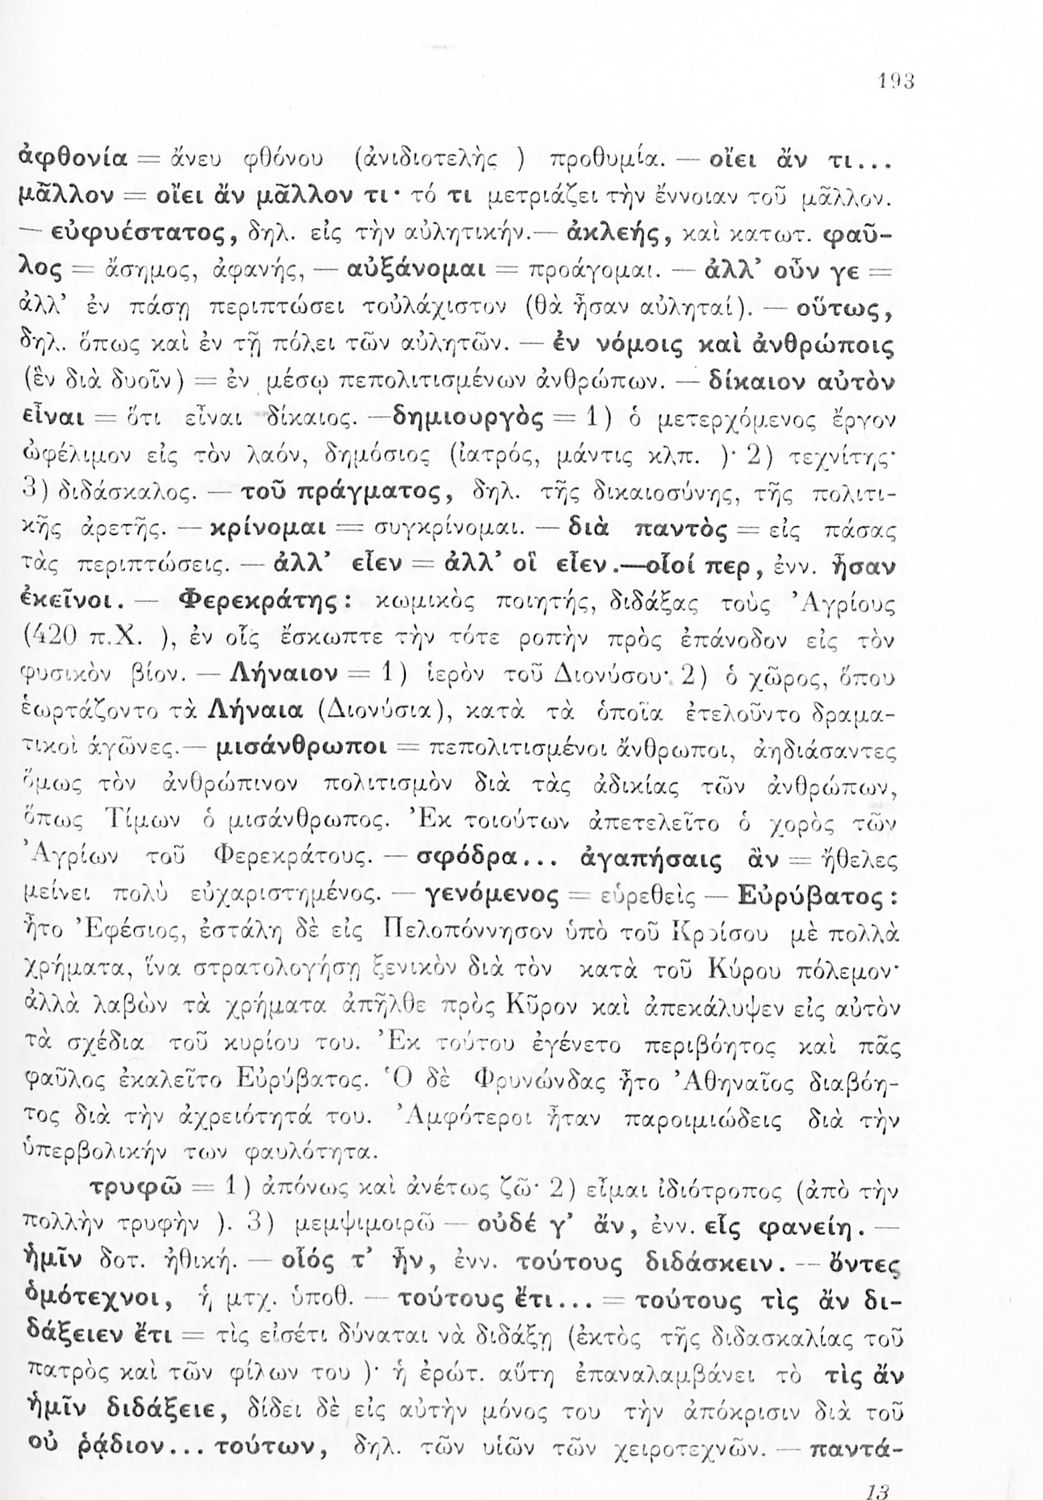 193
ἀφθονία = ἄνευ φθόνου (ἀνιδιοτελὴς ) προθυμία. — οἴει ἄν τι...
μᾶλλον = οἴει ἄν μᾶλλον τι· τό τι μετριάζει τὴν ἔννοιαν τοῦ μᾶλλον.
— εὐφυέστατος, δηλ. εἰς τὴν αὐλητικήν.— ἀκλεής, καὶ κατωτ. φαῦ-
λος = ἄσημος, ἀφανής, — αὐξάνομαι = προάγομαι. — ἀλλ’ οὖν γε =
ἀλλ’ ἐν πάσῃ περιπτώσει τοὐλάχιστον (θὰ ἦσαν αὐληταί). — οὕτως,
δηλ. ὅπως καὶ ἐν τῇ πόλει τῶν αὐλητῶν. — ἐν νόμοις καὶ ἀνθρώποις
(ἓν διὰ δυοῖν) = ἐν μέσῳ πεπολιτισμένων ἀνθρώπων. — δίκαιον αὐτὸν
εἶναι = ὅτι εἶναι δίκαιος. —δημιουργὸς = 1) ὁ μετερχόμενος ἔργον
ὠφέλιμον εἰς τὸν λαόν, δημόσιος (ἰατρός, μάντις κλπ. )· 2) τεχνίτης·
3) διδάσκαλος. — τοῦ πράγματος, δηλ. τῆς δικαιοσύνης, τῆς πολιτι-
κῆς ἀρετῆς. — κρίνομαι = συγκρίνομαι. — διὰ παντὸς = εἰς πάσας
τὰς περιπτώσεις. — ἀλλ’ εἶεν = ἀλλ’ οἳ εἶεν.—οἷοί περ, ἐνν. ἦσαν
ἐκεῖνοι. — Φερεκράτης: κωμικὸς ποιητής, διδάξας τοὺς ’Αγρίους
(420 π.Χ. ), ἐν οἷς ἔσκωπτε τὴν τότε ροπὴν πρὸς ἐπάνοδον εἰς τὸν
φυσικὸν βίον. — Λήναιον = 1) ἱερὸν τοῦ Διονύσου· 2) ὁ χῶρος, ὅπου
ἑωρτάζοντο τὰ Λήναια (Διονύσια), κατὰ τὰ ὁποῖα ἐτελοῦντο δραμα-
τικοὶ ἀγῶνες.— μισάνθρωποι = πεπολιτισμένοι ἄνθρωποι, ἀηδιάσαντες
ὅμως τὸν ἀνθρώπινον πολιτισμὸν διὰ τὰς ἀδικίας τῶν ἀνθρώπων,
ὅπως Τίμων ὁ μισάνθρωπος. ’Εκ τοιούτων ἀπετελεῖτο ὁ χορὸς τῶν
’Αγρίων τοῦ Φερεκράτους. — σφόδρα... ἀγαπήσαις ἂν = ἤθελες
μείνει πολὺ εὐχαριστημένος. — γενόμενος = εὑρεθεὶς — Εὐρύβατος:
ἦτο ’Εφέσιος, ἐστάλη δὲ εἰς Πελοπόννησον ὑπὸ τοῦ Κροίσου μὲ πολλὰ
χρήματα, ἵνα στρατολογήσῃ ξενικὸν διὰ τὸν κατὰ τοῦ Κύρου πόλεμον·
ἀλλὰ λαβὼν τὰ χρήματα ἀπῆλθε πρὸς Κῦρον καὶ ἀπεκάλυψεν εἰς αὐτὸν
τὰ σχέδια τοῦ κυρίου του. ’Εκ τούτου ἐγένετο περιβόητος καὶ πᾶς
φαῦλος ἐκαλεῖτο Εὐρύβατος. ‘Ο δὲ Φρυνώνδας ἦτο ’Αθηναῖος διαβόη-
τος διὰ τὴν ἀχρειότητά του. ’Αμφότεροι ἦταν παροιμιώδεις διὰ τὴν
ὑπερβολικήν των φαυλότητα.
τρυφῶ = 1) ἀπόνως καὶ ἀνέτως ζῶ· 2) εἶμαι ἰδιότροπος (ἀπὸ τὴν
πολλὴν τρυφὴν ). 3) μεμψιμοιρῶ — οὐδέ γ’ ἄν, ἐνν. εἷς φανείη. —
ἡμῖν δοτ. ἠθική. — οἷός τ’ ἦν, ἐνν. τούτους διδάσκειν. -- ὄντες
ὁμότεχνοι, ἡ μτχ. ὑποθ. — τούτους ἔτι... = τούτους τὶς ἄν δι-
δάξειεν ἔτι = τὶς εἰσέτι δύναται νὰ διδάξῃ (ἐκτὸς τῆς διδασκαλίας τοῦ
πατρὸς καὶ τῶν φίλων του )· ἡ ἐρώτ. αὕτη ἐπαναλαμβάνει τὸ τὶς ἄν
ἡμῖν διδάξειε, δίδει δὲ εἰς αὐτὴν μόνος του τὴν ἀπόκρισιν διὰ τοῦ
οὐ ῥᾴδιον... τούτων, δηλ. τῶν υἱῶν τῶν χειροτεχνῶν. — παντά-
13